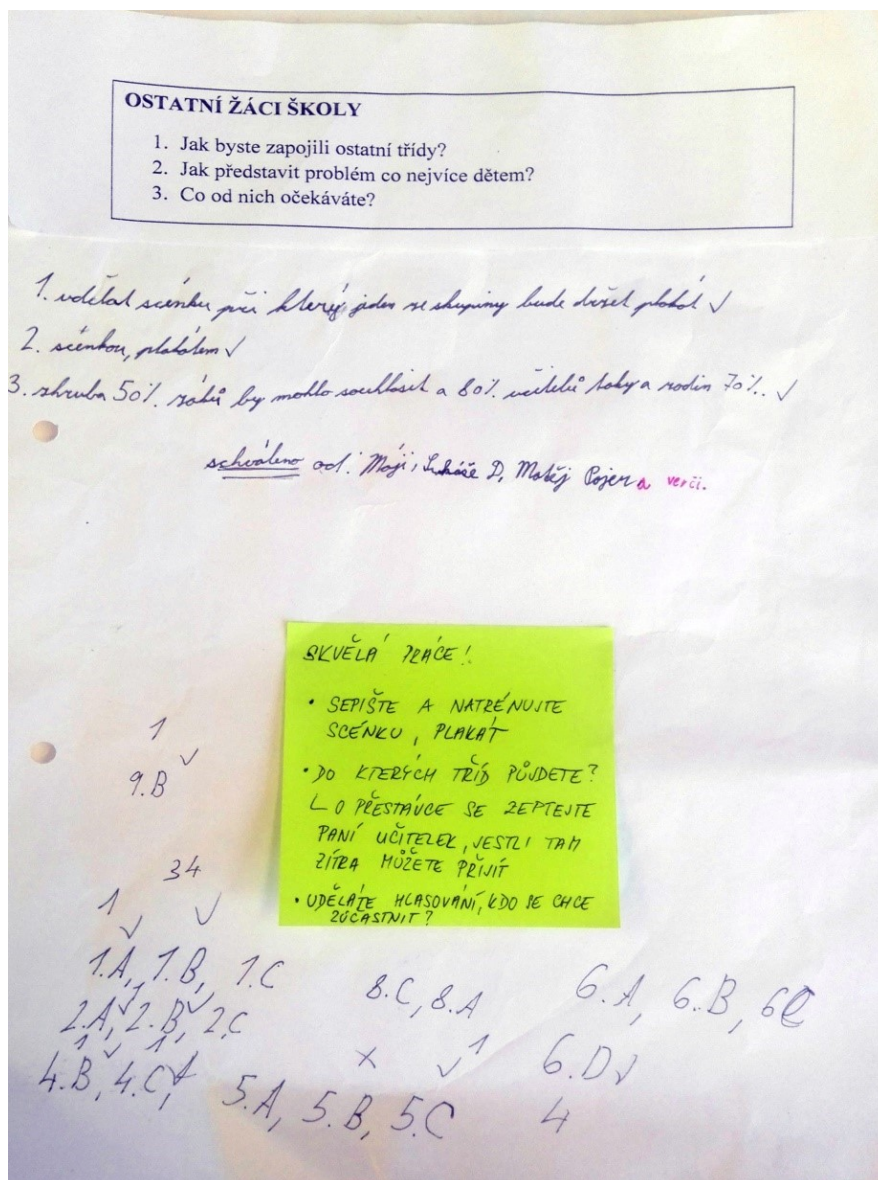 OSTATNÍ ŽÁCI ŠKOLY
1. Jak byste zapojili ostatní třídy?
2. Jak představit problém co nejvíce dětem?
3. Co od nich očekáváte?
1. udělat scénku při který jeden ze skupiny bude držet plakát ✓
2. scénkou, plakátem ✓
3. zhruba 50% žáků by mohlo souhlasit a 80% učitelů taky a rodin 70%. ✓
schváleno od: Máji, Lukáše D, Matěj Pojer a verči.
SKVĚLÁ PRÁCE!
• SEPIŠTE A NATRÉNUJTE
SCÉNKU, PLAKÁT
• DO KTERÝCH TŘÍD PŮJDETE?
O PŘESTÁVCE SE ZEPTEJTE
PANÍ UČITELEK, JESTLI TAM
ZÍTRA MŮŽETE PŘIJÍT
• UDĚLÁTE HLASOVÁNÍ, KDO SE CHCE
ZÚČASTNIT?
1
9.B ✓
34
1 ✓ ✓
1.A, 1.B, 1.C
2.A, 2.B, 2.C
4.B, 4.C,
5.A, 5.B, 5.C
8.C, 8.A
x ✓ 1
6.A, 6.B, 6C
6.D ✓
4